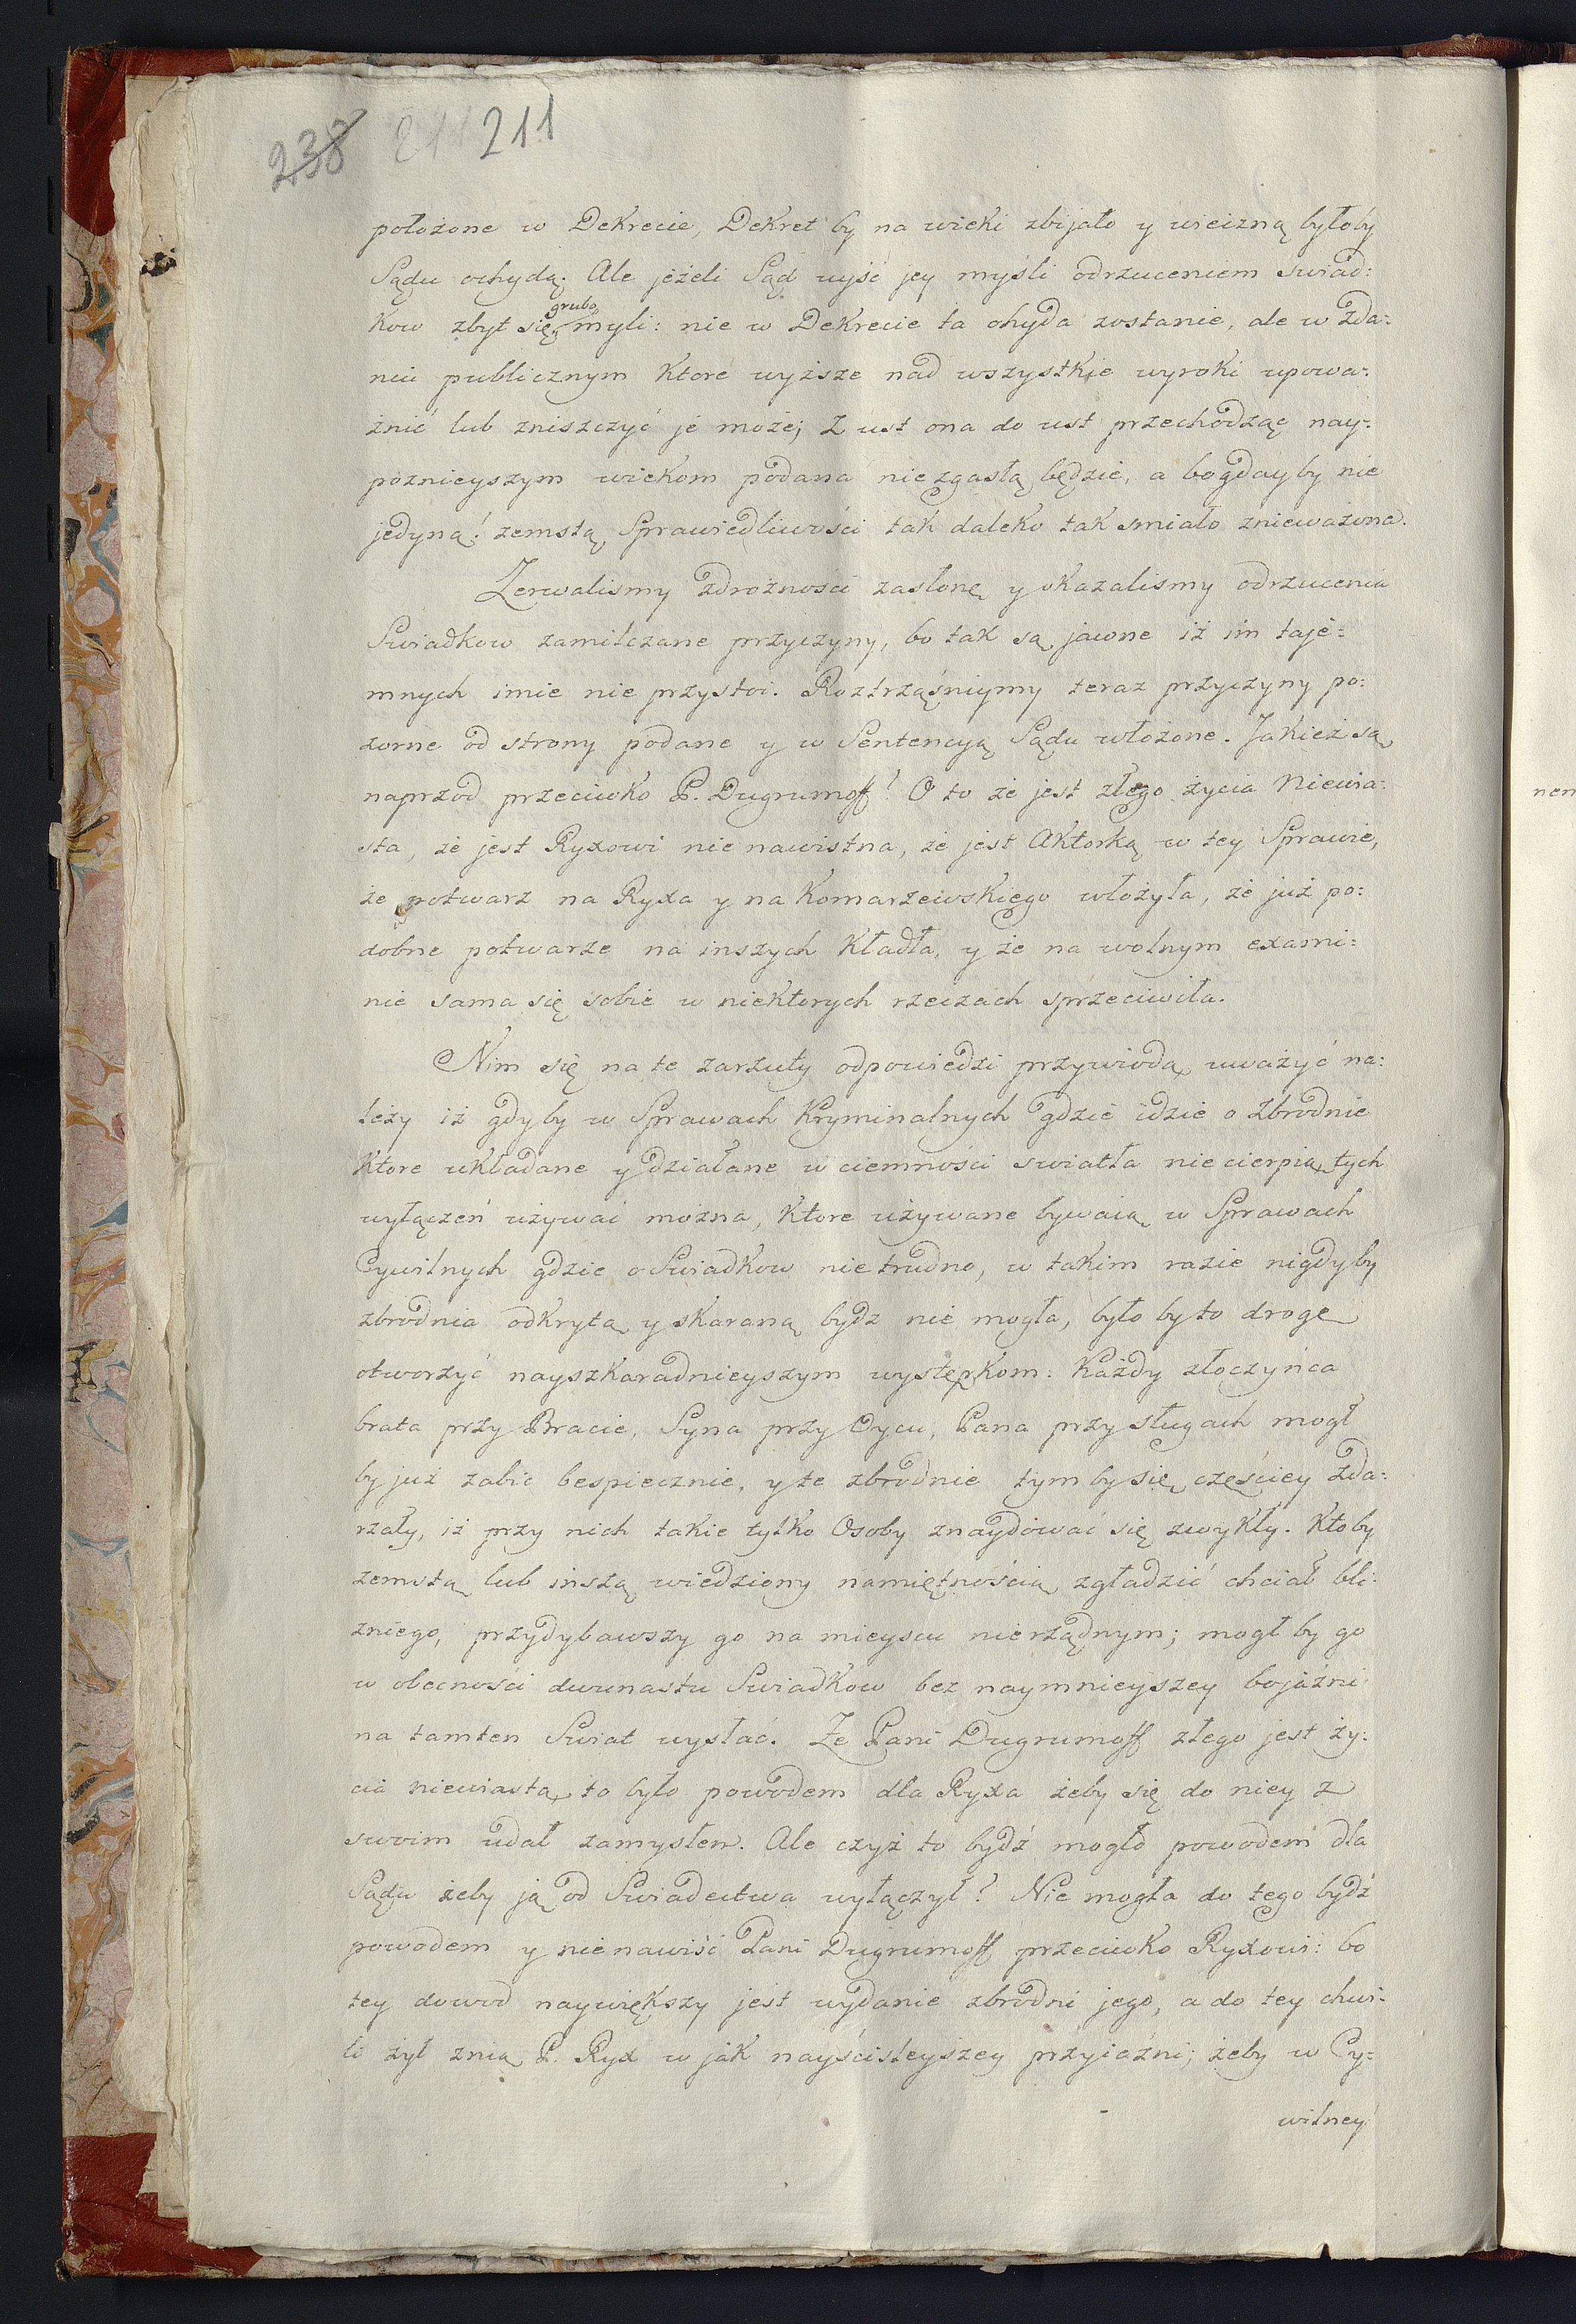 238 211 211
położone w Dekrecie, Dekret by na wieki zbijało y wieczną byłoby
Sądu ochydą. Ale jeżeli Sąd uyść jey myśli odrzuceniem swiad:
kow zbyt się grubo myli: nie w Dekrecie ta ohyda zostanie, ale w zda:
niu publicznym ktore wyższe nad wszystkie wyroki upowa:
żnić lub zniszczyć je może; Z ust ona do ust przechodząc nay:
poznieyszym wiekom podana niezgasłą będzie, a bogdayby nie
jedyną! zemstą, Sprawiedliwości tak daleko tak smiało znieważona.
Zerwalismy zdrożności zasłonę y okazalismy odrzucenia
Swiadkow zamilczane przyczyny, bo tak są jawne iż im taje:
mnych imie nie przystoi. Roztrząśniymy teraz przyczyny po:
zorne od strony podane y w Sentencyą Sądu włożone. Jakież są
naprzod przeciwko P. Dugrumoff? O to że jest złego życia Niewia:
sta, że jest Ryxowi nienawistna, że jest Aktorką w tey Sprawie,
że potwarz na Ryxa y na Komarzewskiego włożyła, że już po:
dobne potwarze na inszych kładła, y że na wolnym exami:
nie sama się sobie w niektorych rzeczach sprzeciwiła.
Nim się na te zarzuty odpowiedzi przywiodą uważyć na:
leży iż gdyby w Sprawach Kryminalnych gdzie idzie o zbrodnie
ktore układane y działane w ciemności swiatła niecierpią, tych
wyłączeń używać można, ktore używane bywaią w Sprawach
Cywilnych gdzie o Swiadkow nie trudno, w takim razie nigdyby
zbrodnia odkrytą y skaraną bydz nie mogła, było by to drogę
otworzyć nayszkaradnieyszym występkom: Każdy złoczyńca
brata przy Bracie, Syna przy Oycu, Pana przy sługach mogł
by już zabic bespiecznie, y te zbrodnie tym by się częściey zda:
rzały, iż przy nich takie tylko Osoby znaydować się zwykły. Ktoby
zemstą lub inszą wiedziony namiętnością zgładzić chciał bli:
zniego, przydybawszy go na mieyscu nierządnym; mogł by go
w obecności dwunastu Swiadkow bez naymnieyszey bojaźni
na tamten Swiat wysłać. Że Pani Dugrumoff złego jest ży:
cia niewiastą, to było powodem dla Ryxa żeby się do niey z
swoim udał zamysłem. Ale czyż to bydź mogło powodem dla
Sądu żeby ją od Swiadectwa wyłączył? Nie mogła do tego bydź
powodem y nienawiść Pani Dugrumoff przeciwko Ryxowi: bo
tey dowod naywiększy jest wydanie zbrodni jego, a do tey chwi:
li żył znią P. Ryx w jak nayściśleyszey przyiaźni; żeby w Cy:
wilney
nem